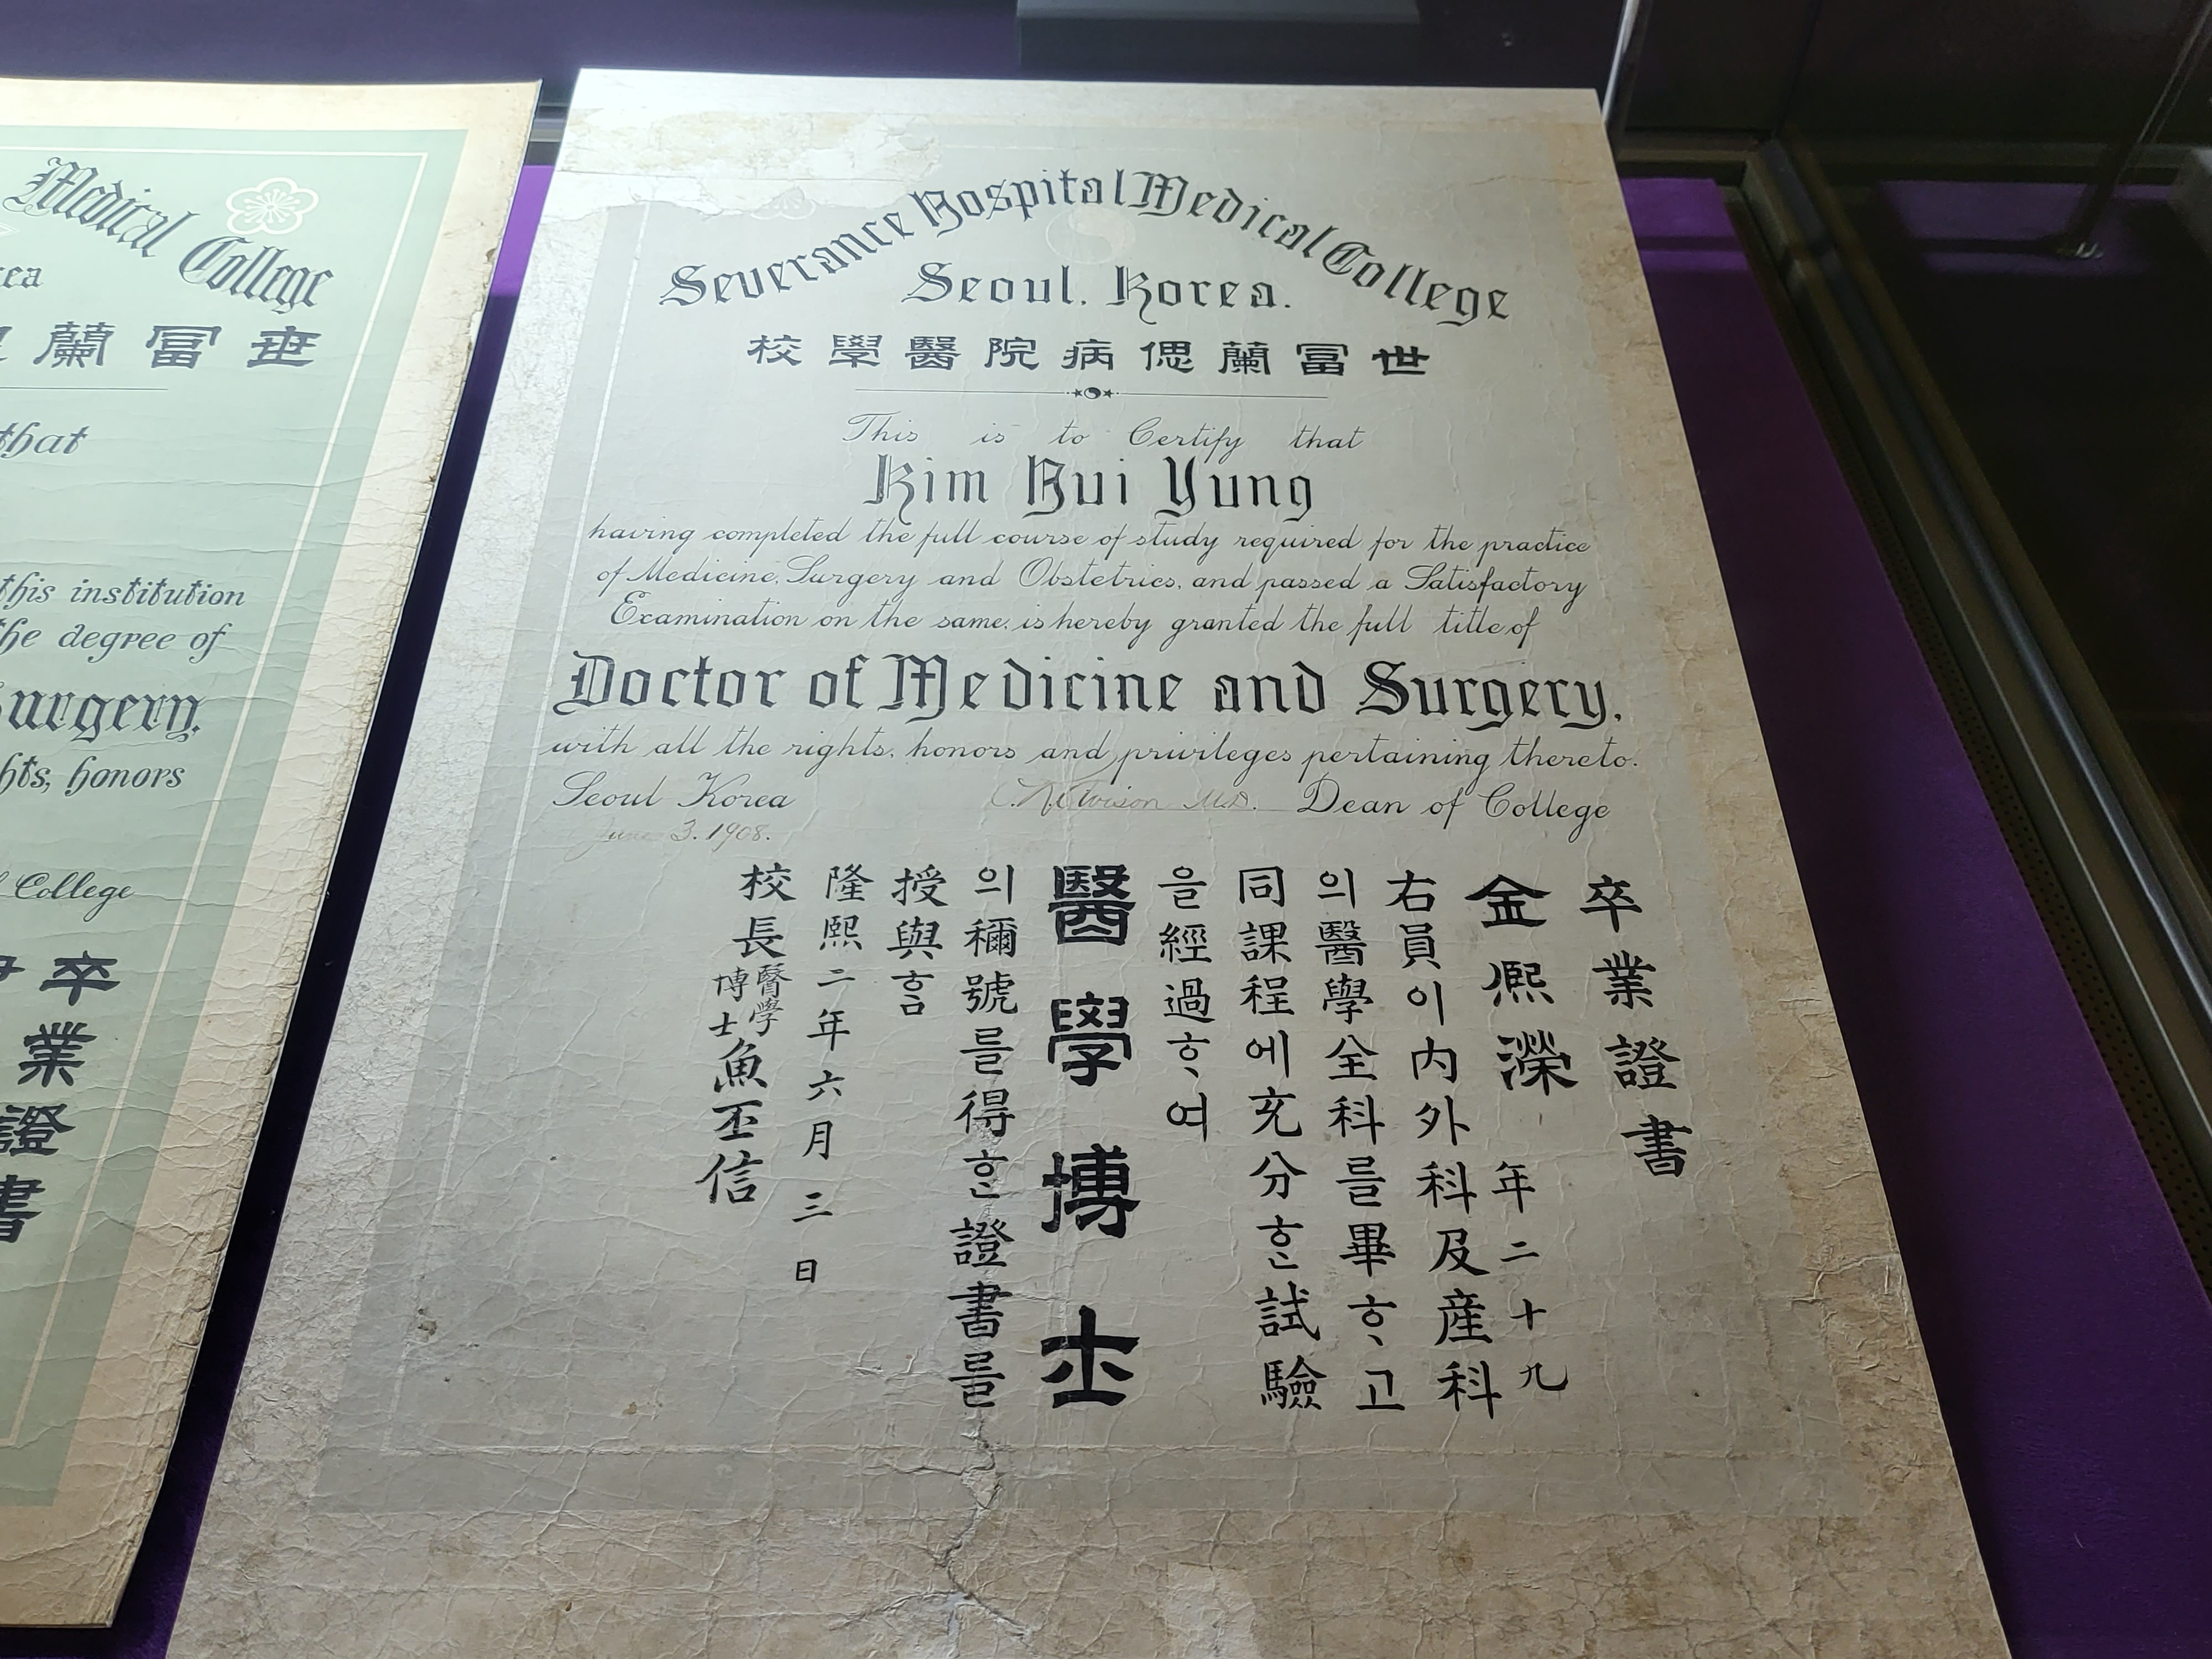 Medical College
蘭冨世
that
this institution
the degree of
Surgery.
honors
College
卒業證書
Severance Hospital Medical College
Seoul. Korea.
校學醫院病偲蘭冨世
This is to Certify that
Kim Hui Yung
having completed the full course of study required for the practice
of Medicine, Surgery and Obstetrics, and passed a Satisfactory
Examination on the same, is hereby granted the full title of
Doctor of Medicine and Surgery.
with all the rights, honors and privileges pertaining thereto.
Seoul Korea
June 3. 1908.
M.D. Dean of College
卒業證書
金熙濚 年二十九
右員이內外科及産科
의醫學全科를畢ᄒᆞ고
同課程에充分ᄒᆞᆫ試驗
을經過ᄒᆞ여
醫學博士
의穪號를得ᄒᆞᆫ證書를
授與ᄒᆞᆷ
隆熙二年六月三日
校長醫學博士魚丕信